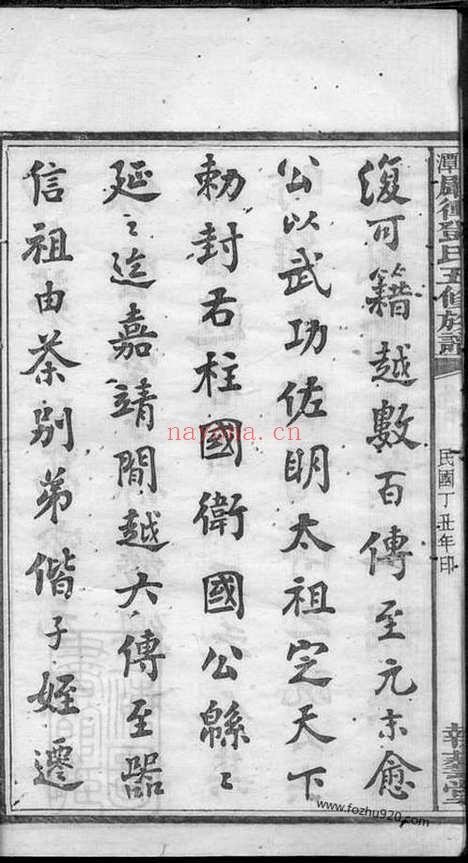 潭鳳衝鄧氏五修族譜
民國丁丑年印
復可籍越數百傳至元末愈
公以武功佐明太祖定天下
勅封右柱國衛國公緜〻
延〻迄嘉靖間越六傳至器
信祖由茶别弟偕子姪遷
nayona.cn
www.fozhu920.com